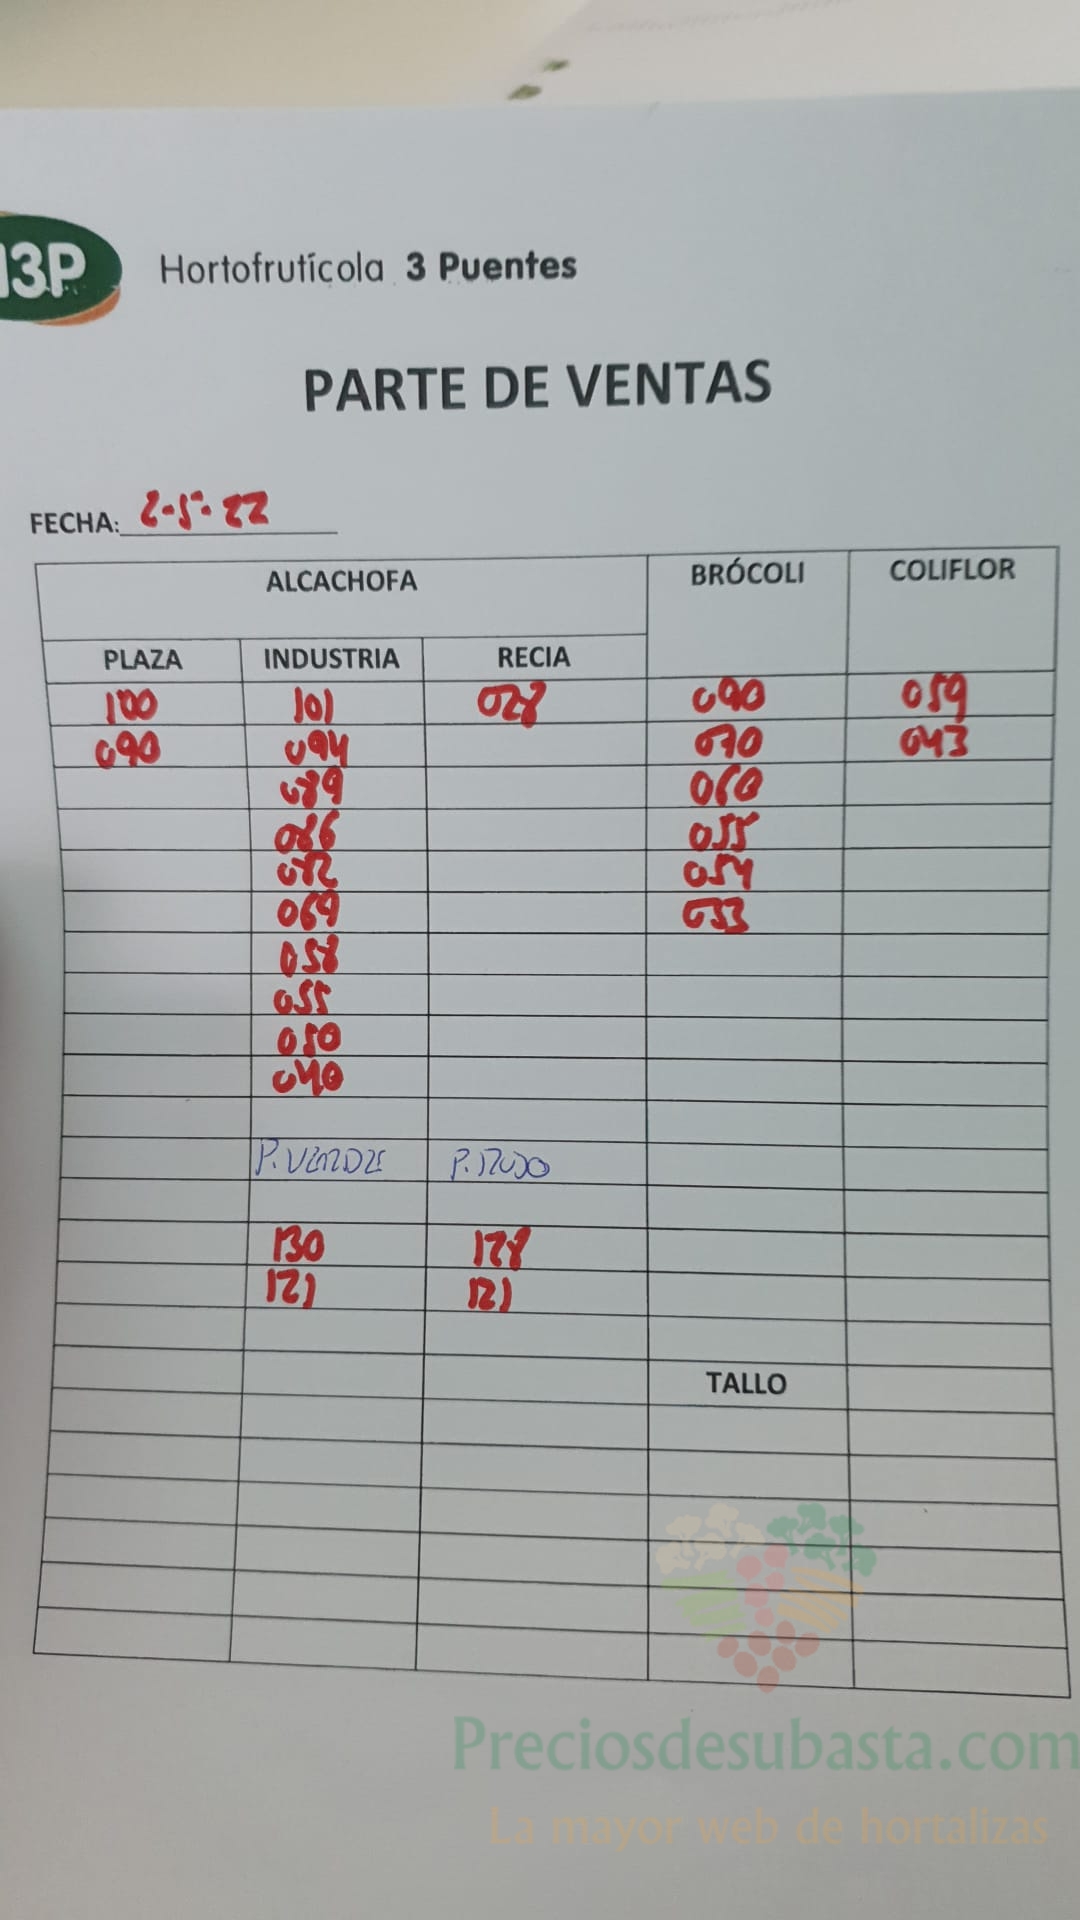 H3P Hortofrutícola 3 Puentes
PARTE DE VENTAS
FECHA: 2-5-22
ALCACHOFA BRÓCOLI COLIFLOR
PLAZA INDUSTRIA RECIA
100 101 028 090 059
090 094 070 043
089 060
086 055
054
069 033
058
055
050
040
P. VERDE P. RUJO
130 128
121 121
TALLO
Preciosdesubasta.com
La mayor web de hortalizas